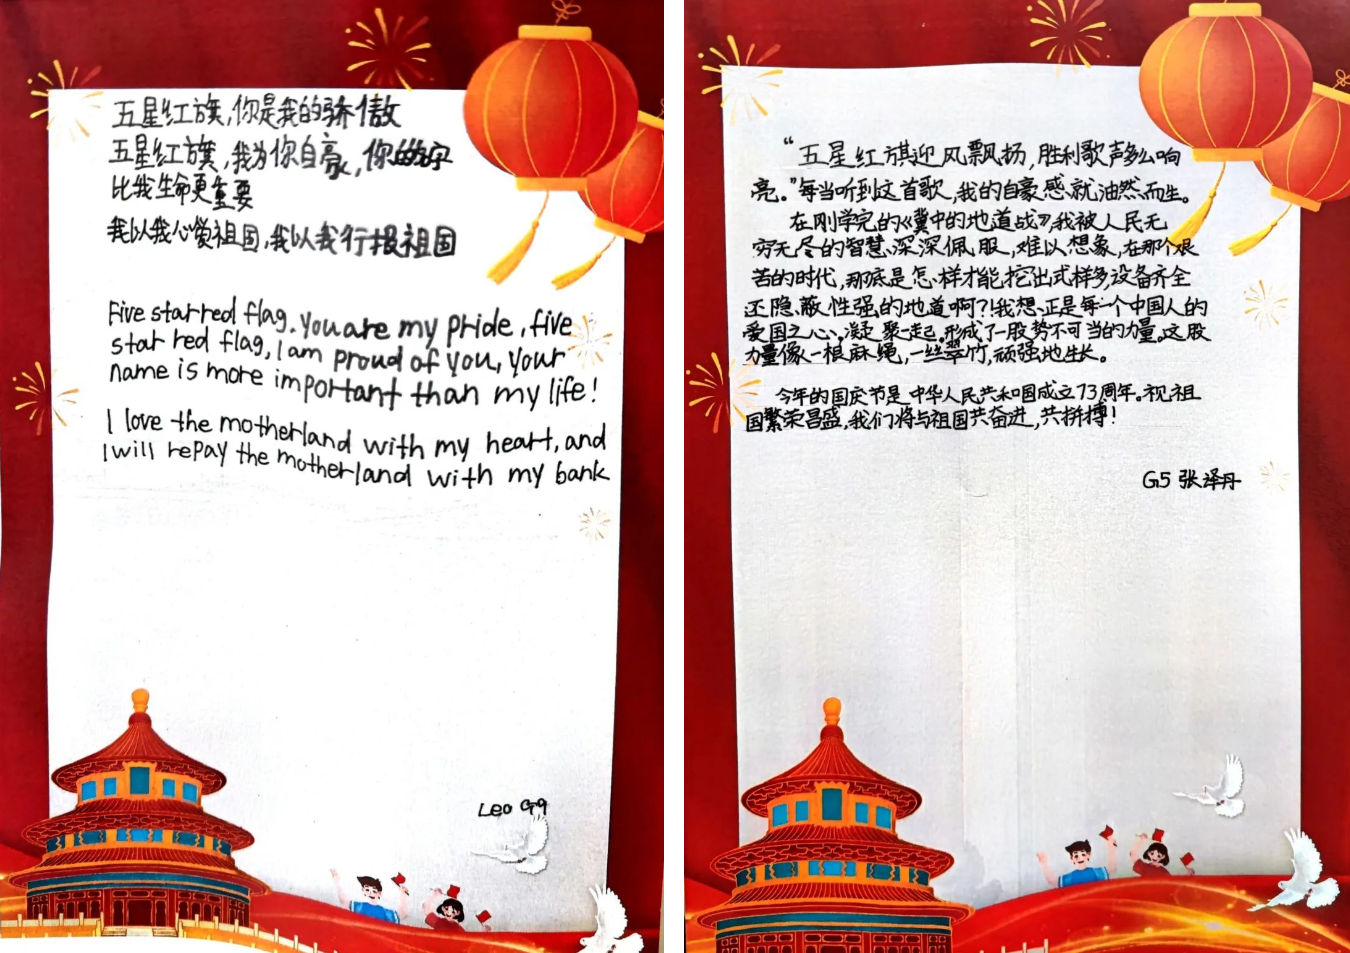 五星红旗,你是我的骄傲
五星红旗,我为你自豪,你的名字
比我生命更重要
我以我心爱祖国,我以我行报祖国
Five star red flag. you are my pride, five
star red flag, I am proud of you, your
name is more important than my life!
I love the motherland with my heart, and
I will repay the motherland with my bank
Leo G9
“五星红旗迎风飘扬,胜利歌声多么响
亮。”每当听到这首歌,我的自豪感就油然而生。
在刚学完的《冀中的地道战》,我被人民无
穷无尽的智慧深深佩服,难以想象,在那个艰
苦的时代,那底是怎样才能挖出式样多,设备齐全
还隐蔽性强的地道啊?!我想,正是每一个中国人的
爱国之心,凝聚一起,形成了一股势不可当的力量。这股
力量像一根麻绳,一丝翠竹,顽强地生长。
今年的国庆节是中华人民共和国成立73周年。祝祖
国繁荣昌盛,我们将与祖国共奋进,共拼搏!
G5 张泽丹